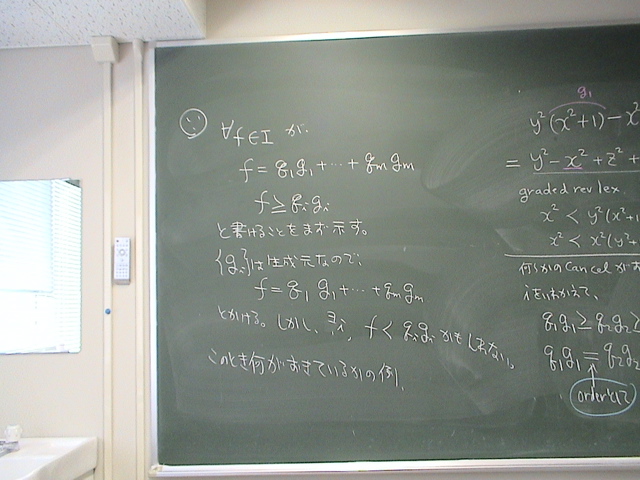 ∀f∈I が
f = q₁g₁ + … + qₘgₘ
f ≥ qᵢgᵢ
と書けることをまず示す。
{gᵢ}は生成元なので、
f = q₁g₁ + … + qₘgₘ
とかける。しかし、∃i, f < qᵢgᵢ かもしれない。
このとき何がおきているかの例.
g₁
y²(x²+1) − x²
= y² − x² + z² +
graded rev lex
x² < y²(x²+
x² < x²(y²+
何らかのCancelがお
iをいれかえて、
q₁g₁ ≥ q₂g₂ ≥
q₁g₁ = q₂g₂
orderだけ